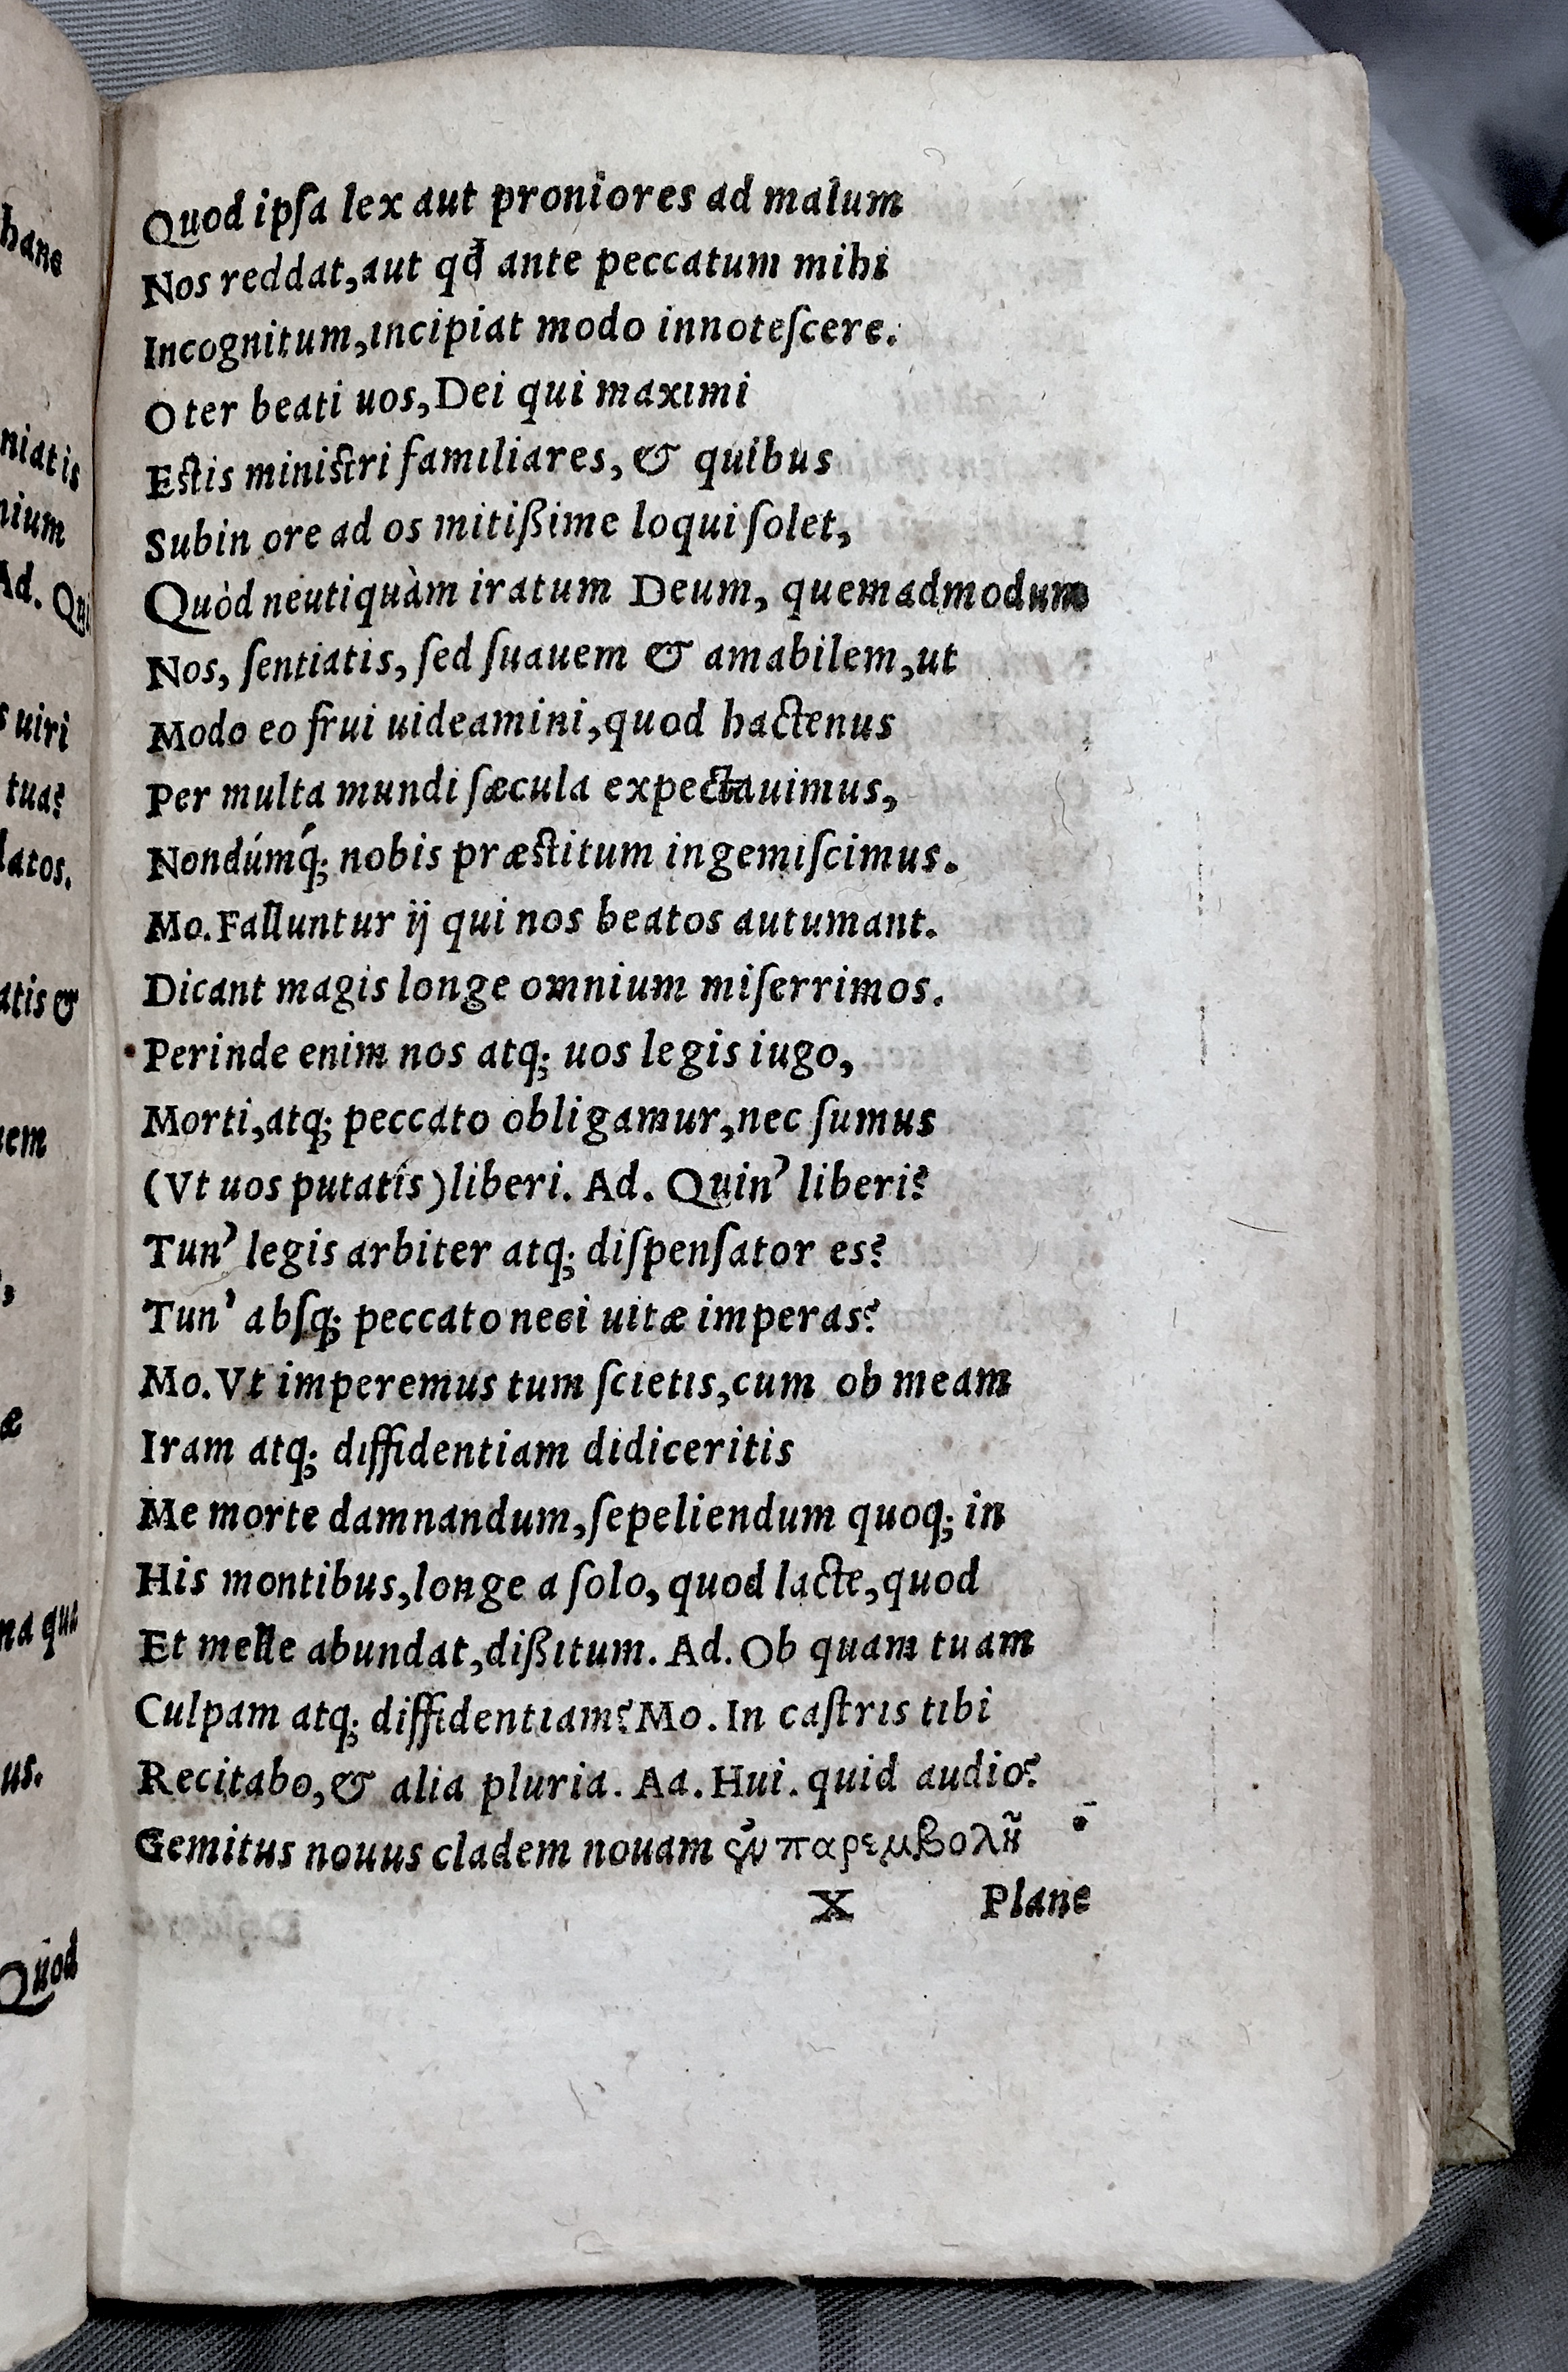 hanc
niatis
nium
Ad. Qui
s uiri
tua?
latos.
atis &
uem
æ
na qua
us.
Quod
Quod ipſa lex aut proniores ad malum
Nos reddat, aut qđ ante peccatum mihi
Incognitum, incipiat modo innoteſcere.
O ter beati uos, Dei qui maximi
Eſtis miniſtri familiares, & quibus
Subin ore ad os mitißime loqui ſolet,
Quòd neutiquàm iratum Deum, quemadmodum
Nos, ſentiatis, ſed ſuauem & amabilem, ut
Modo eo frui uideamini, quod hactenus
Per multa mundi ſæcula expectauimus,
Nondúmq́; nobis præſtitum ingemiſcimus.
Mo. Falluntur ij qui nos beatos autumant.
Dicant magis longe omnium miſerrimos.
Perinde enim nos atq; uos legis iugo,
Morti, atq; peccato obligamur, nec ſumus
(Vt uos putatis) liberi. Ad. Quin' liberi?
Tun' legis arbiter atq; diſpenſator es?
Tun' abſq; peccato neci uitæ imperas?
Mo. Vt imperemus tum ſcietis, cum ob meam
Iram atq; diffidentiam didiceritis
Me morte damnandum, ſepeliendum quoq; in
His montibus, longe a ſolo, quod lacte, quod
Et melle abundat, dißitum. Ad. Ob quam tuam
Culpam atq; diffidentiam? Mo. In caſtris tibi
Recitabo, & alia pluria. Ad. Hui. quid audio?
Gemitus nouus cladem nouam παρεμβολῇ
X Plane